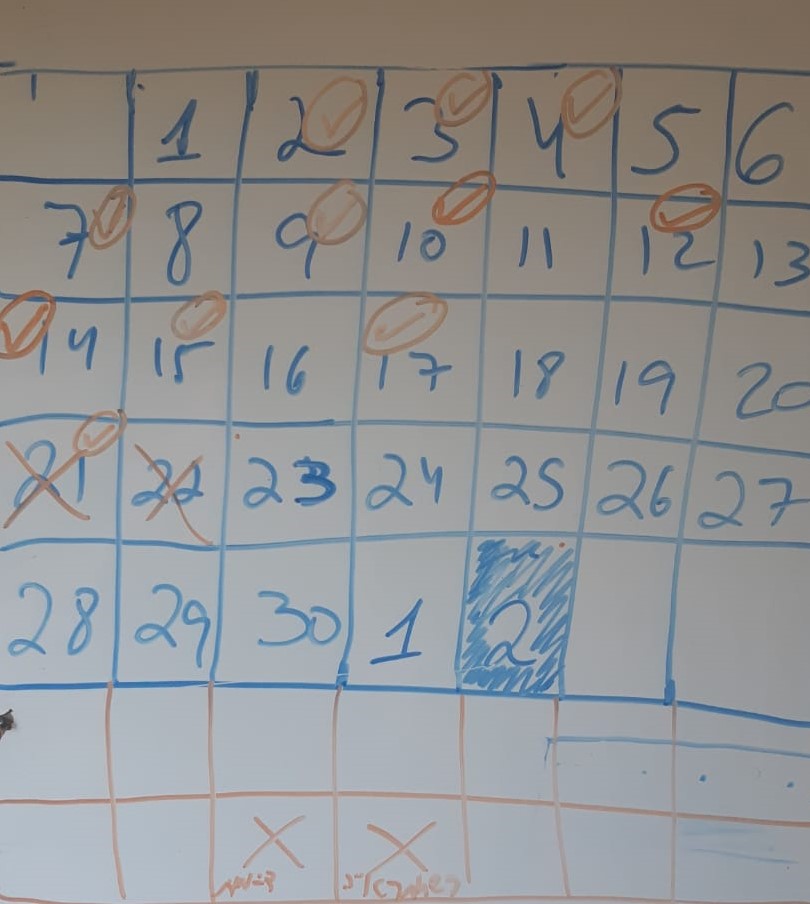 1 2 3 4 5 6
7 8 9 10 11 12 13
14 15 16 17 18 19 20
21 22 23 24 25 26 27
28 29 30 1 2